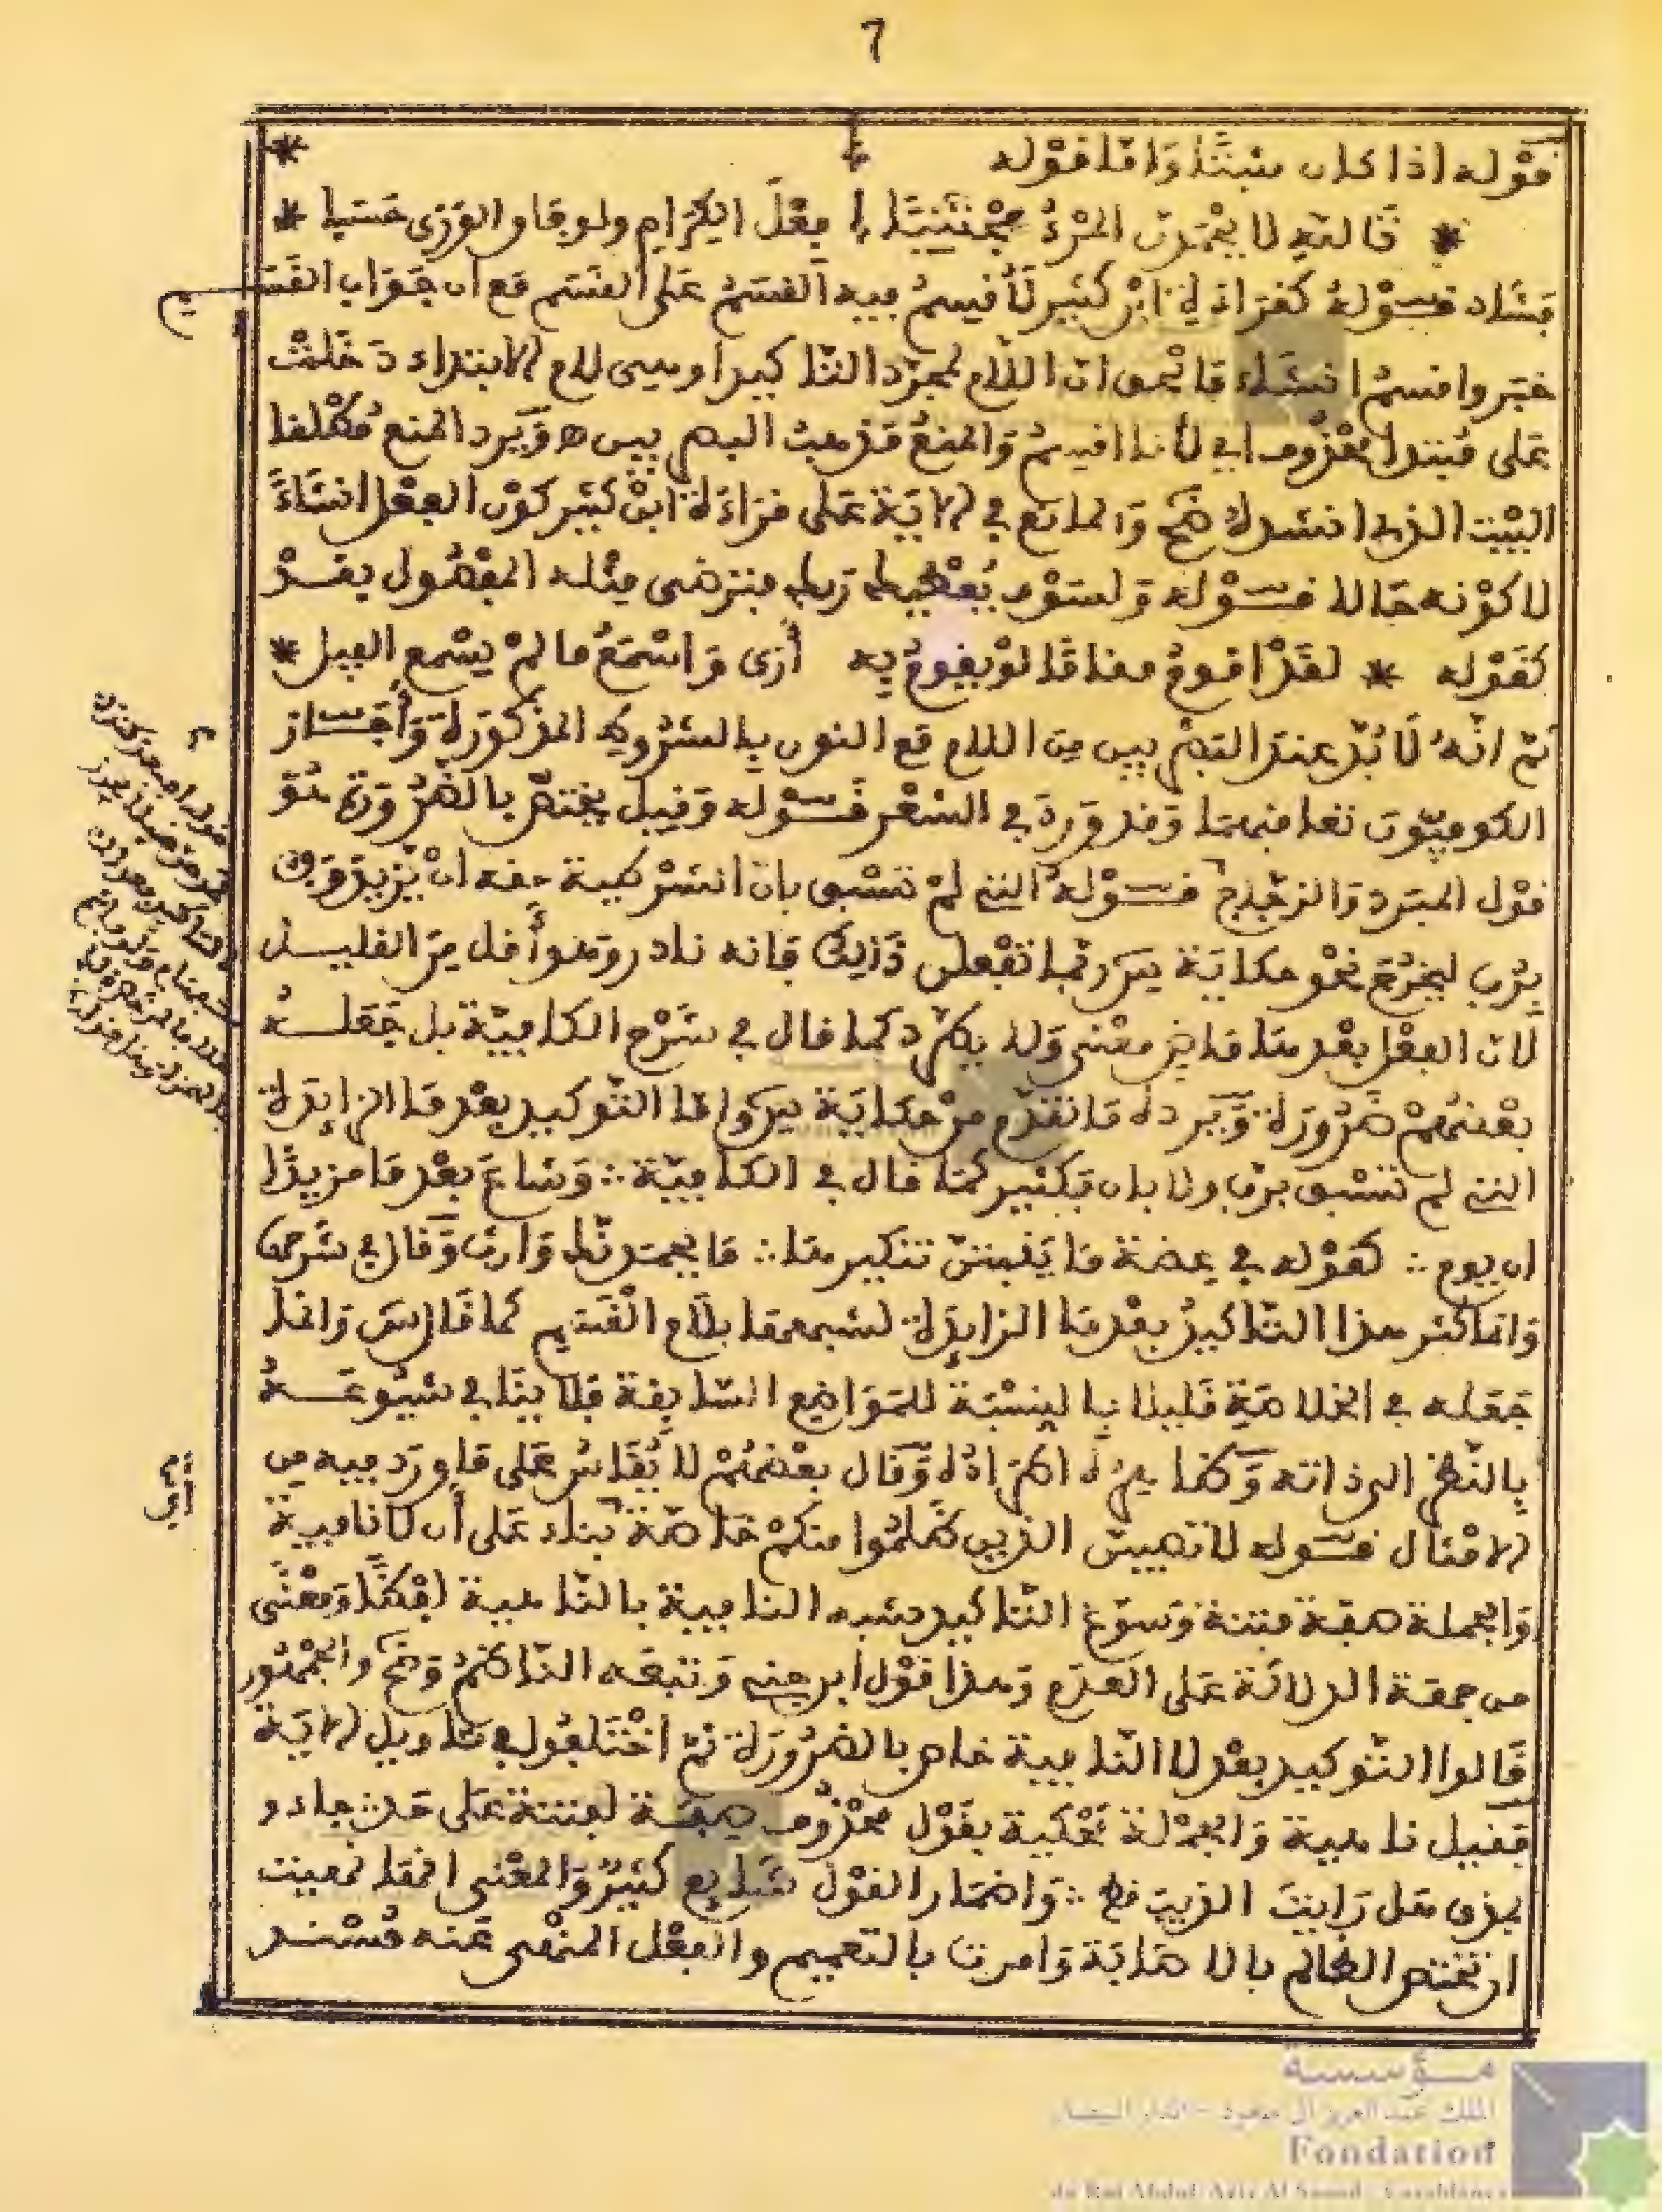 7
قوله اذا كان مثبتا واما قوله
* تالله لا يحمدن المرء مجتنبا * فعل الكرام ولو فاق الورى حسبا *
فشاذ قوله كقراءة ابن كثير لأقسم فيه القسم على القسم مع ان جواب القسم
خبر واقسم انشاء فالحق ان اللام لمجرد التأكيد أو هي لام الابتداء دخلت
على مبتدا محذوف اي لأنا اقسم والمنع مذهب البصريين ويرد المنع مطلقا
البيت الذي انشده صح والمانع في الآية على قراءة ابن كثير كون الفعل انشاء
لا كونه حالا قوله ولسوف يعطيك ربك فترضى مثله المفصول بقد
كقوله * لقد اقوم مقاما لو يقوم به ارى واسمع ما لم يسمع الفيل *
ثم انه لا بد عند البصريين من اللام مع النون بالشروط المذكورة وأجاز
الكوفيون تعاقبهما وقد ورد في الشعر قوله وقيل يختص بالضرورة هو
قول المبرد والزجاج قوله التي لم تسبق بان الشرطية حقه ان يزيد وبرب
برب ليخرج نحو حكاية س ربما تفعلن ذلك فانه نادر وهو أقل من القليل
لان الفعل بعدها ماض معنى ولا يطرد كما قال في شرح الكافية بل جعله
بعضهم ضرورة ويرده ما تقدم من حكاية س واما التوكيد بعد ما الزايدة
التي لم تسبق برب ولا بان فكثير كما قال في الكافية ∴ وشاع بعد ما مزيدا
ان يوم ∴ كقوله في عضة ما ينبتن شكيرها ∴ ما يحمدنك وارث وقال في شرحها
وانما كثر هذا التأكيد بعد ما الزايدة لشبهها بلام القسم كما قال س وانما
جعله في الخلاصة قليلا بالنسبة للمواضع السابقة فلا ينافي شيوعه
بالنظر الى ذاته وظاهره اطراده وقال بعضهم لا يقاس على ما ورد فيه من
الامثال قوله لا تصيبن الذين ظلموا منكم خاصة بناء على أن لا نافية
والجملة صفة فتنة وسوغ التأكيد شبه النافية بالناهية لفظا ومعنى
من جهة الدلالة على العدم وهذا قول ابن جني وتبعه الناظم وضح والجمهور
قالوا التوكيد بعد لا النافية خاص بالضرورة ثم اختلفوا في تاويل الآية
فقيل ناهية والجملة محكية بقول محذوف صفة لفتنة على حد ∴ جاءوا
بمذق هل رايت الذيب قط ∴ واضمار القول شايع كثير والمعنى انها نهيت
ان تختص الظالم بالاصابة وامرت بالتعميم والفعل المنهي عنه مسند
مؤسسة
الملك عبد العزيز آل سعود - الدار البيضاء
Fondation
du Roi Abdul-Aziz Al Saoud - Casablanca